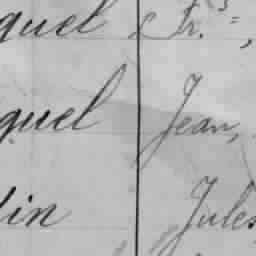 quel Fr.s =,
quel Jean,
lin Jules